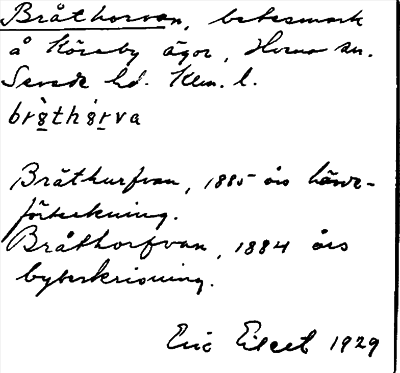 Bråthorvan, betesmark
å Körsby ägor, Horns sn.
Sevede hd. Klm. l.
bråthårva
Bråthurfvan, 1885 års härads-
förteckning.
Bråthorfvan, 1884 års
bybeskrivning.
Eric Elect 1929